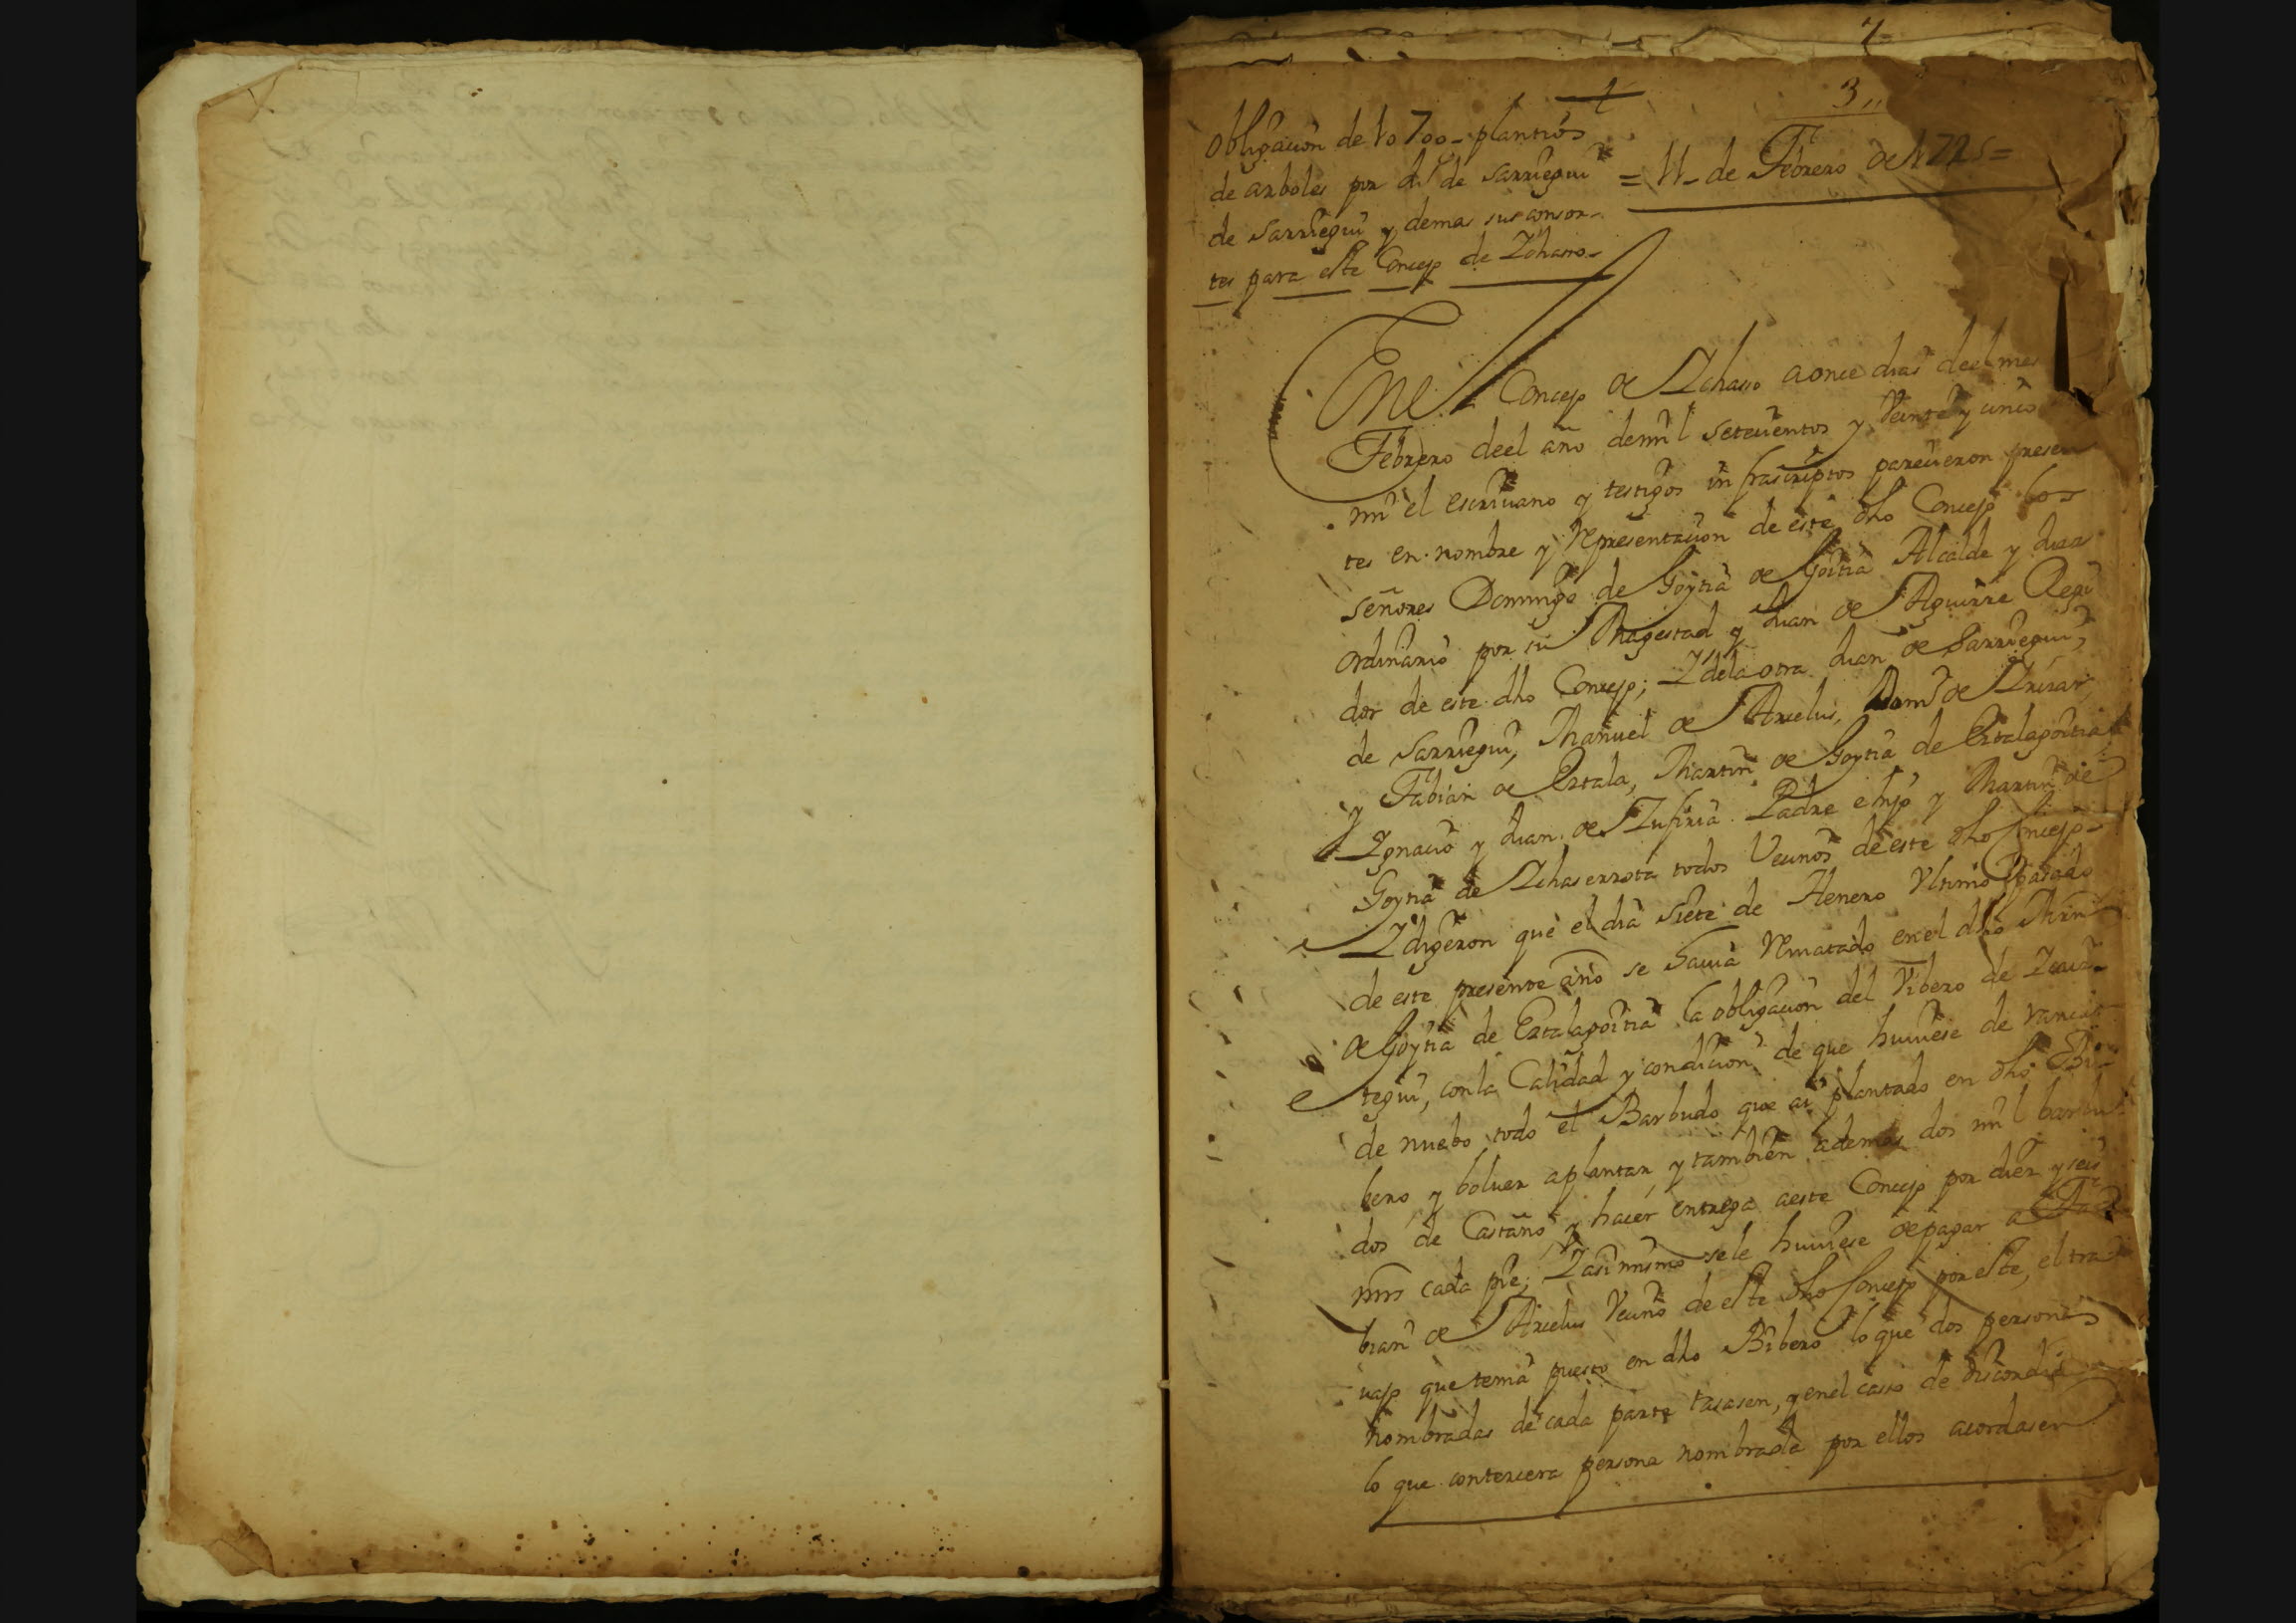 3,,
Obligacion de 10700 plantios
de arboles por Ju.º de Sarriegui
de Sarriegui y demas sus consor-
tes para este Concejo de Ichasso
= 11- de Febrero de 1725=
En el Concejo de Ychasso a once dias de el mes
Febrero de el año de mil setecientos y Veinte y cinco
mi el escrivano y testigos infrascriptos parecieron presen
tes en nombre y Representacion de este dho Concejo los
señores Domingo de Goytia de Goitia Alcalde y Juez
ordinario por su Magestad y Juan de Aguirre Regi
dor de este dho Concejo; Y de la otra Juan de Sarriegui,
de Sarriegui, Manuel de Arcelus, Dom.º de Yrizar,
y Fabian de Ertala, Martin de Goytia de Ertalagoitia
Ygnacio y Juan de Padre e hijo y Martin de
Goytia de Ychaserrota todos Vecinos de este dho Concejo-
Y digeron que el dia siete de Henero Ultimo pasado
de este presente año se havia Rematado en el dho Mrn
de Goytia de Ertalagoitia la obligacion del Vibero de
tegui, con la Calidad y condicion de que huviese de
de nuebo todo el Barbudo que ai plantado en dho Bi-
bero, y bolver a plantar, y tambien ademas dos mil barbu
dos de Castaño, y hacer entrega a este Concejo por diez y seis
mrs cada pie; Y asi mismo se le huviese de pagar a Fa
bian de Arcelus Vecino de este dho Concejo por este, el tra
vajo que tenia puesto en dho Bibero lo que dos personas
nombradas de cada parte tasasen, y en el casso de discordia
lo que con tercera persona nombrada por ellos acordasen